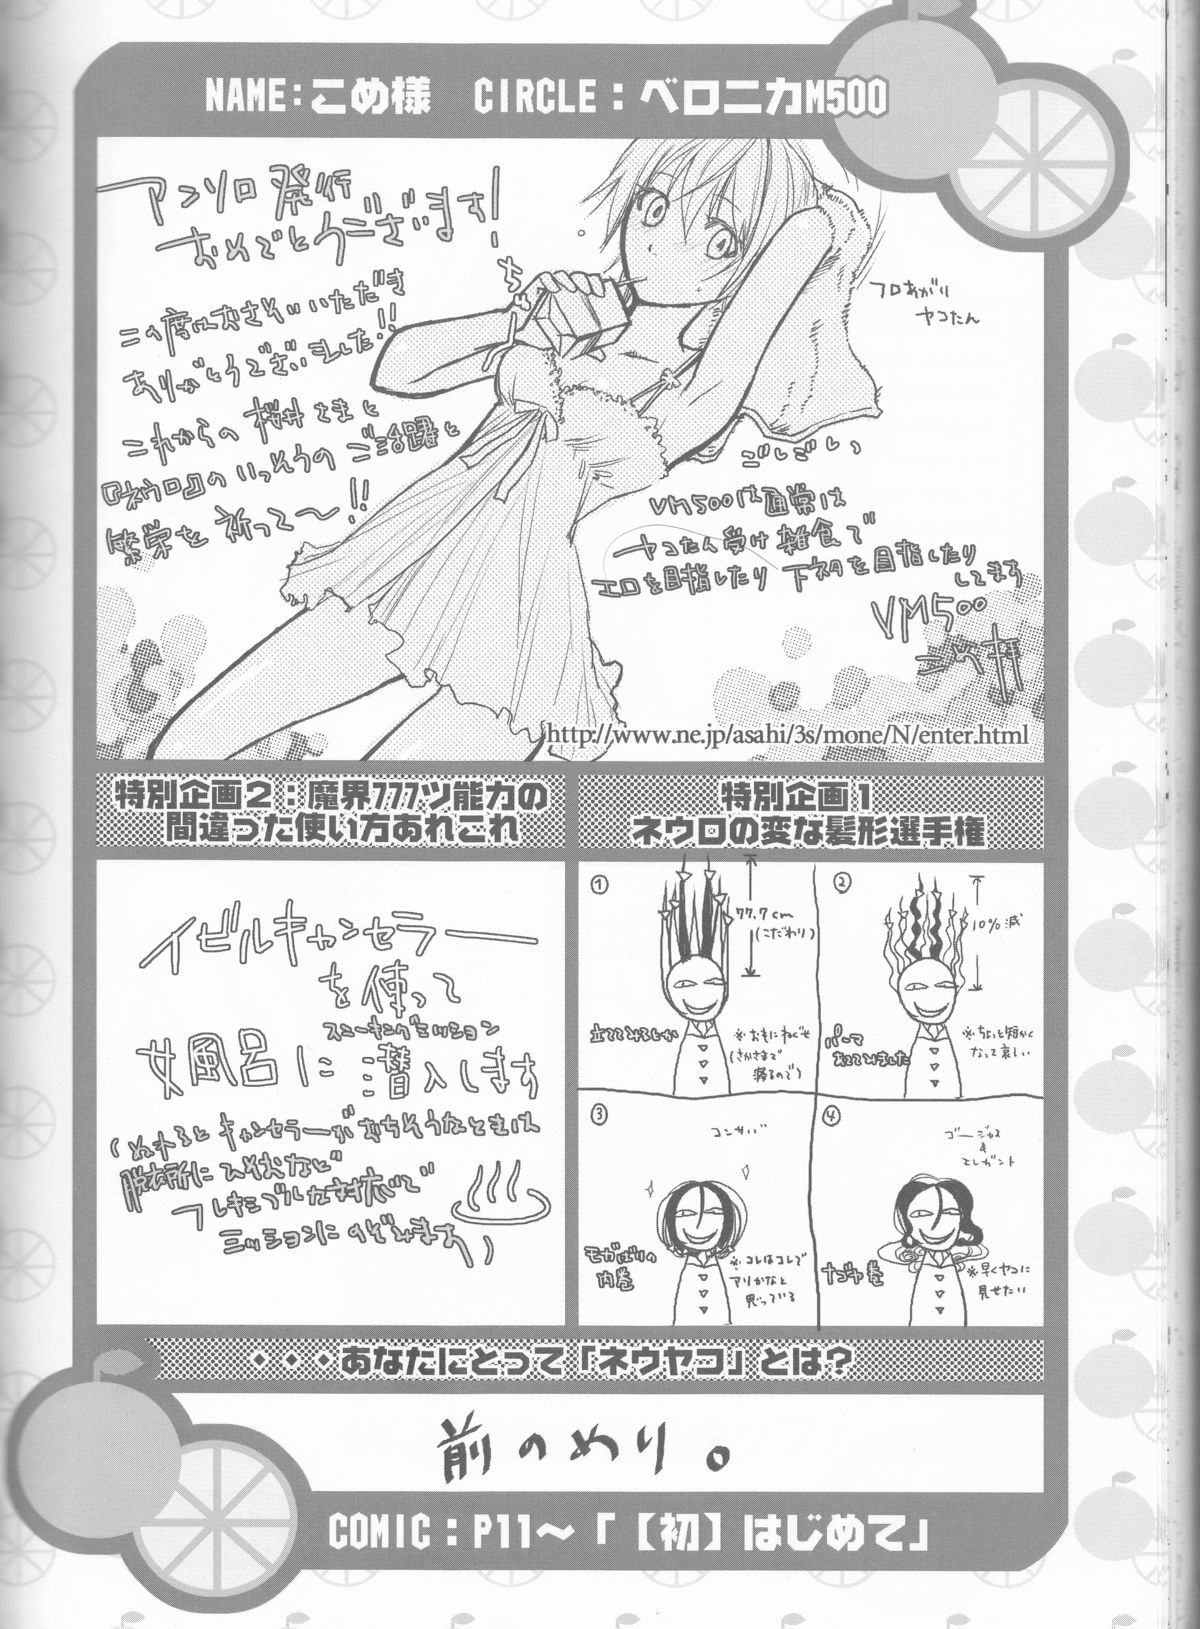 NAME:こめ様 CIRCLE:ベロニカM500
アンソロ発行
おめでとうございます!
この度はおさそいいただき
ありがとうございました!!
これからの桜井さまと
『ネウロ』のいっそうのご活躍と
繁栄を祈って〜!!
ちゅー
フロあがり
ヤコたん
ごしごしっ
VM500は通常は
ヤコたん受け雑食で
エロを目指したり下ネタを目指したり
してます
VM500
http://www.ne.jp/asahi/3s/mone/N/enter.html
特別企画1
ネウロの変な髪形選手権
①
77.7cm
(こだわり)
立ててみるとか
※おもにねぐせ
(さかさまで
寝るので)
②
10%減
パーマ
あててみました
※ちょっと短かく
なって哀しい
③
コンサバ
モガばりの
内巻
※コレはコレで
アリかなと
思っている
④
ゴージャス
&
エレガント
ナゴヤ巻
※早くヤコに
見せたい
特別企画2:魔界777ツ能力の
間違った使い方あれこれ
イビルキャンセラー
を使って
スニーキングミッション
女風呂に潜入します
(ぬれるとキャンセラーがおちそうなときは
脱衣所にひそむなど
フレキシブルな対応で
ミッションにのぞみます)
・・・あなたにとって「ネウヤコ」とは?
前のめり。
COMIC:P11〜「【初】はじめて」